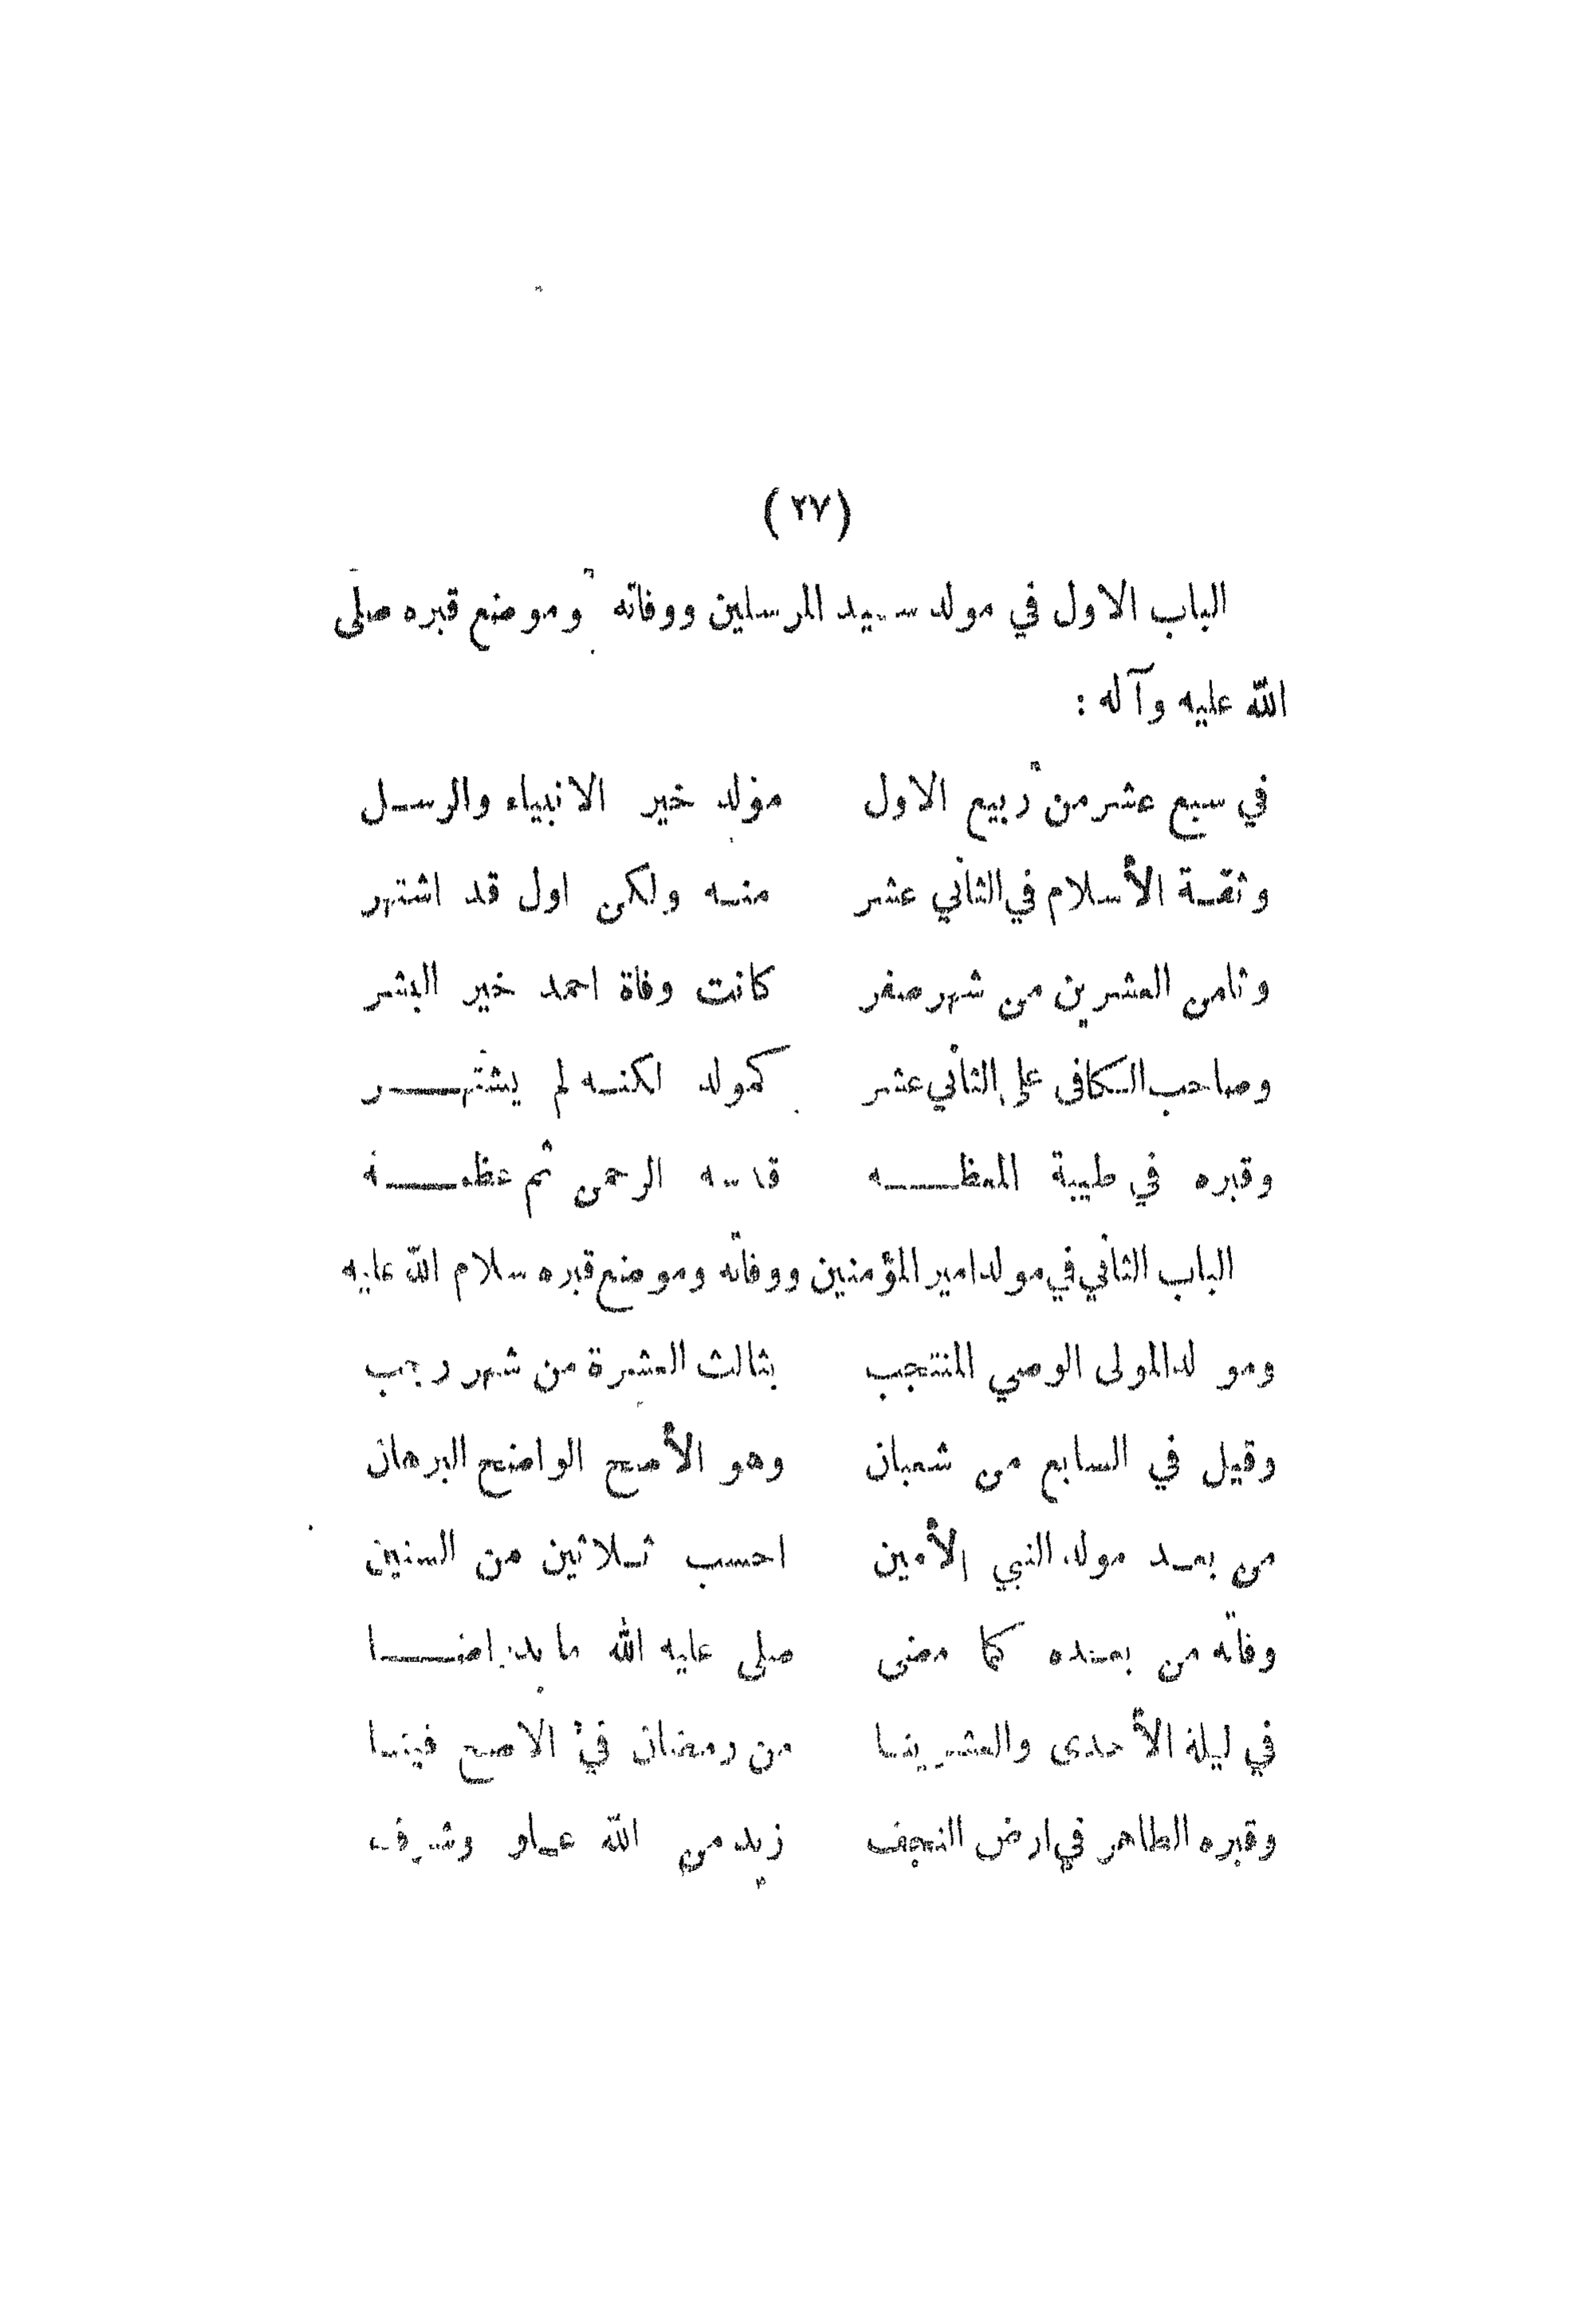 (٢٧)
الباب الاول في مولد سيد المرسلين ووفاته وموضع قبره صلى
الله عليه وآله :
في سبع عشر من ربيع الاول مولد خير الانبياء والرسل
وثقة الأسلام في الثاني عشر منه ولكن اول قد اشتهر
وثامن العشرين من شهر صفر كانت وفاة احمد خير البشر
وصاحب الكافى على الثاني عشر كمولد لكنه لم يشتهر
وقبره في طيبة المعظمه الرحمن ثم عظمه
الباب الثاني في مولد امير المؤمنين ووفاته وموضع قبره سلام الله عليه
ومولد المولى الوصي المنتجب بثالث العشرة من شهر رجب
وقيل في السابع من شعبان وهو الأصح الواضح البرهان
من بعد مولد النبي الأمين احسب ثلاثين من السنين
وفاته من بعده كما مضى صلى عليه الله ما بدر اضا
في ليلة الأحدى والعشرينا من رمضان في الاصح فينا
وقبره الطاهر في ارض النجف زيد من الله علو وشرف